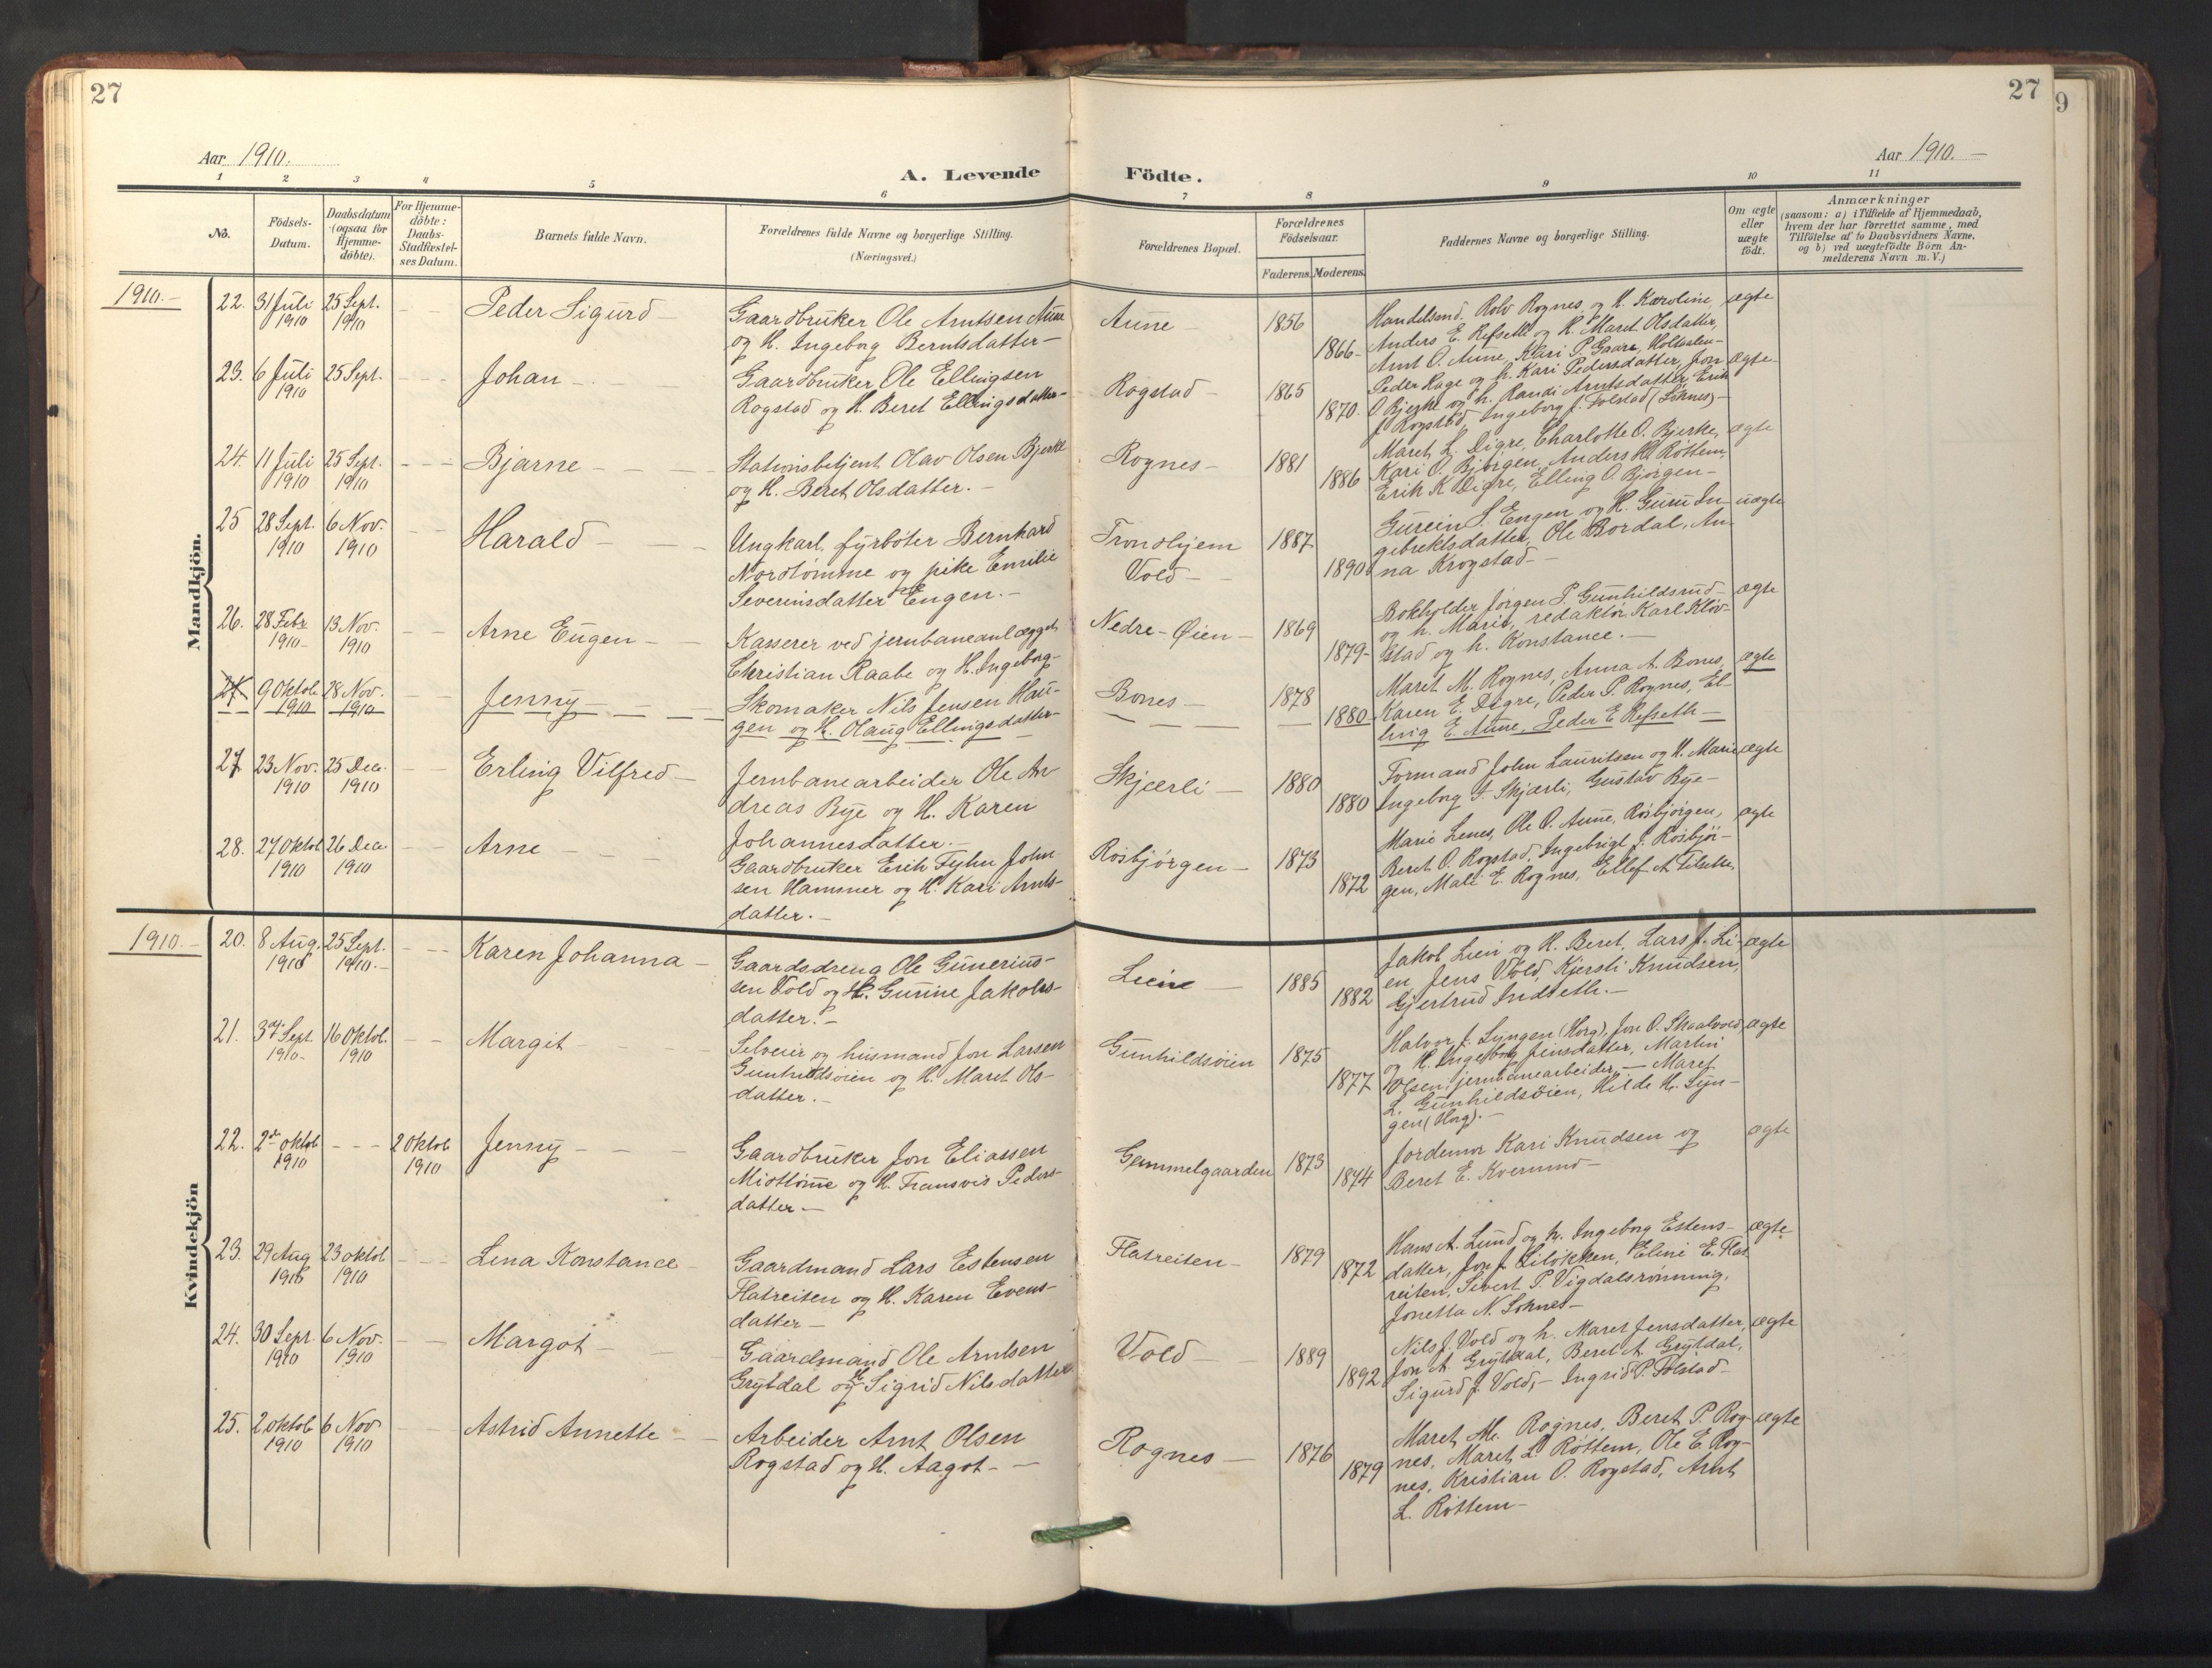 27
27
9
Aar 1910.
Aar 1910.—
A. Levende
Födte.
1 2 3 4 5 6 7 8 9 10 11
No.
Födsels-
Datum.
Daabsdatum
(ogsaa for
Hjemme-
döbte).
For Hjemme-
döbte:
Daabs-
Stadfæstel-
ses Datum.
Barnets fulde Navn.
Forældrenes fulde Navne og borgerlige Stilling.
(Næringsvei.)
Forældrenes Bopæl.
Forældrenes
Födselsaar.
Faderens. Moderens.
Faddernes Navne og borgerlige Stilling.
Om ægte
eller
uægte
födt.
Anmærkninger
(saasom: a) i Tilfælde af Hjemmedaab,
hvem der har forrettet samme, med
Tilföielse af to Daabsvidners Navne,
og b) ved uægtefödte Börn An-
melderens Navn m. V.)
Mandkjön.
1910.—
22. 31 Juli 25 Sept. — — Peder Sigurd —
1910 1910
Gaardbruker Ole Arntsen Aune
og H. Ingeborg Berntsdatter —
Aune — 1856 1866 —
Handelsmd. Rolv Rognes og H. Karoline, ægte
Anders E. Refseth og H. Maret Olsdatter,
Arnt O. Aune, Kari P. Gaare, Holtaalen —
23. 6 Juli 25 Sept. — — Johan —
1910
Gaardbruker Ole Ellingsen
Rogstad og H. Beret Ellingsdatter —
Rogstad — 1865 1870.
Peder Hage og h. Kari Pedersdatter, Jon ægte —
O Bjerke og h. Randi Arntsdatter, Erik
J Rogstad, Ingeborg J. Folstad (Soknes) —
24. 11 Juli 25 Sept. — — Bjarne — — —
1910 1910
Stationsbetjent Olav Olsen Bjerke
og H. Beret Olsdatter. —
Rognes — 1881 1886
Maret L. Digre, Charlotte O. Bjerke, ægte
Kari O. Bjørgen, Anders H. Røttem,
Erik K Digre, Elling O. Bjørgen —
25 28 Sept. 6 Nov. — — Harald — — —
1910 1910
Ungkarl, fyrbøter Bernhard
Nordtømme og pike Emilie
Severinsdatter Engen. —
Trondhjem
Vold —
1887 1890
S. Engen og H. Guru In- uægte
gebrektsdatter, Ole Bordal, An-
na Krogstad —
26. 28 Febr 13 Nov. — — Arne Eugen —
1910 — 1910
Kasserer ved jernbaneanlægget
Christian Raabe og H. Ingeborg —
Nedre-Øien — 1869 1879 —
Bokholder Jørgen P. Gunhildsrud — ægte
og h. Marie, redaktør Karl Kløv-
stad og h. Konstance. —
27 9 Oktob 28 Nov. Jenny — — —
1910 1910
Skomaker Nils Jensen Hau-
gen og H. Olaug Ellingsdatter —
Bones — 1878 1880
Maret M. Rognes, Anna A. Bones, ægte
Karen E. Digre, Peder P. Rognes, El-
E. Aune, Peder E Refseth —
27 23 Nov. 25 Dec. — — Erling Vilfred —
1910 1910
Jernbanearbeider Ole An
dreas Bye og H. Karen
Johannesdatter. —
Skjærli — 1880 1880
Formand John Lauritsen og H. Marie ægte
Ingeborg T. Skjærli, Gustav Bye —
28. 27 Oktob 26 Dec. — — Arne — — —
1910 1910
Gaardbruker Erik Fyhn John
sen Hammer og H. Kari Arnts-
datter. —
Rosbjørgen — 1873 1872
Marie Lenes, Ole O. Aune, Rosbjørgen, ægte
Beret O. Rogstad, Ingebrigt J. Rosbjør-
gen, Mali E. Rognes, Ellef A Tilseth,
Kvindekjön
1910 —
20. 8 Aug. 25 Sept. — — Karen Johanna —
1910 1910. —
Gaardsdreng Ole Gunerius-
sen Vold og H. Gurine Jakobs-
datter. —
Lien — 1885 1882
Jakob Lien og H. Beret, Lars J. Li- ægte
en Jens Vold, Kjersti Knudsen,
Gjertrud Indseth. —
21. 3 Sept. 16 Oktob. — — Margit — — —
1910 — 1910
Selveier og husmand Jon Larsen
Gunhildsøien og H. Maret Ols-
datter. —
Gunhildsøien 1875 1877
Halvor J. Lyngen (Horg), Jon O. Skaalvold, ægte
og H. Ingeborg Jensdatter, Martin
Olsen, jernbanearbeider, — Maret
L. Gunhildsøien, Hilde H. Lyn-
gen (Horg). —
22. 2den Oktob — — — 2 Oktob Jenny — — —
1910 1910
Gaardbruker Jon Eliassen
Midttømme og H. Fransvis Peders-
datter —
Gammelgaarden 1873 1874
Jordemor Kari Knudsen og ægte
Beret E. Kvernmo —
23. 29 Aug 23 Oktob — — Lina Konstance —
1910 1910
Gaardmand Lars Estensen
Flatreiten og H. Karen Evens-
datter —
Flatreiten — 1879 1872
Hans A. Lund og h. Ingeborg Estens- ægte
datter, Jon J. Liløkken, Eline E. Flat
reiten, Sivert P. Vigdalsrønning,
Jonetta N. Soknes —
24. 30 Sept. 6 Nov. — — Margot — — —
1910 1910
Gaardmand Ole Arntsen
Grytdal og H Sigrid Nilsdatter
Vold — — 1889 1892
Nils J. Vold og h. Maret Jensdatter, ægte
Jon A. Grytdal, Beret A. Grytdal,
Sigurd J. Vold, — Ingrid P. Folstad —
25. 2 Oktob 6 Nov — — Astrid Annette — —
1910 1910
Arbeider Arnt Olsen
Rogstad og H. Aagot — —
Rognes — 1876 1879
Maret M. Rognes, Beret P. Rog- ægte
nes, Maret L. Røttem, Ole E. Rog-
nes, Kristian O. Rogstad, Arnt
L. Røttem —